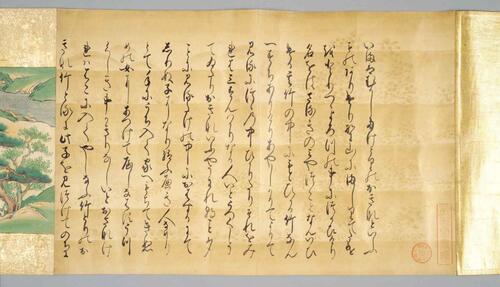 いまはむかしたけとりのおきなといふ
ものありけり野山にましりてたけを
とりつゝよろつの事につかひけり
名をはさぬきのみやつことなんいひ
ける其竹の中にもとひかる竹なん
一すちありけりあやしかりてよりて
見るにつゝの中ひかりたりそれをみ
れは三すんはかりなる人いとうつくしう
てゐたりおきないふやうわれ
ことに見る竹の中におはするにて
しりぬ子になり給ふへき人なめり
とて手にうち入て家へもちてきぬ
めの女にあつけてやしなはすうつ
くしき事かきりなしいとおさなけ
れははこに入てやしなふ竹とりのお
きな竹とるに此子を見つけてのち